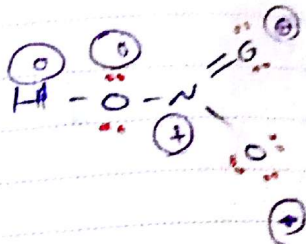 0 0 0
H - O - N = O
+
O